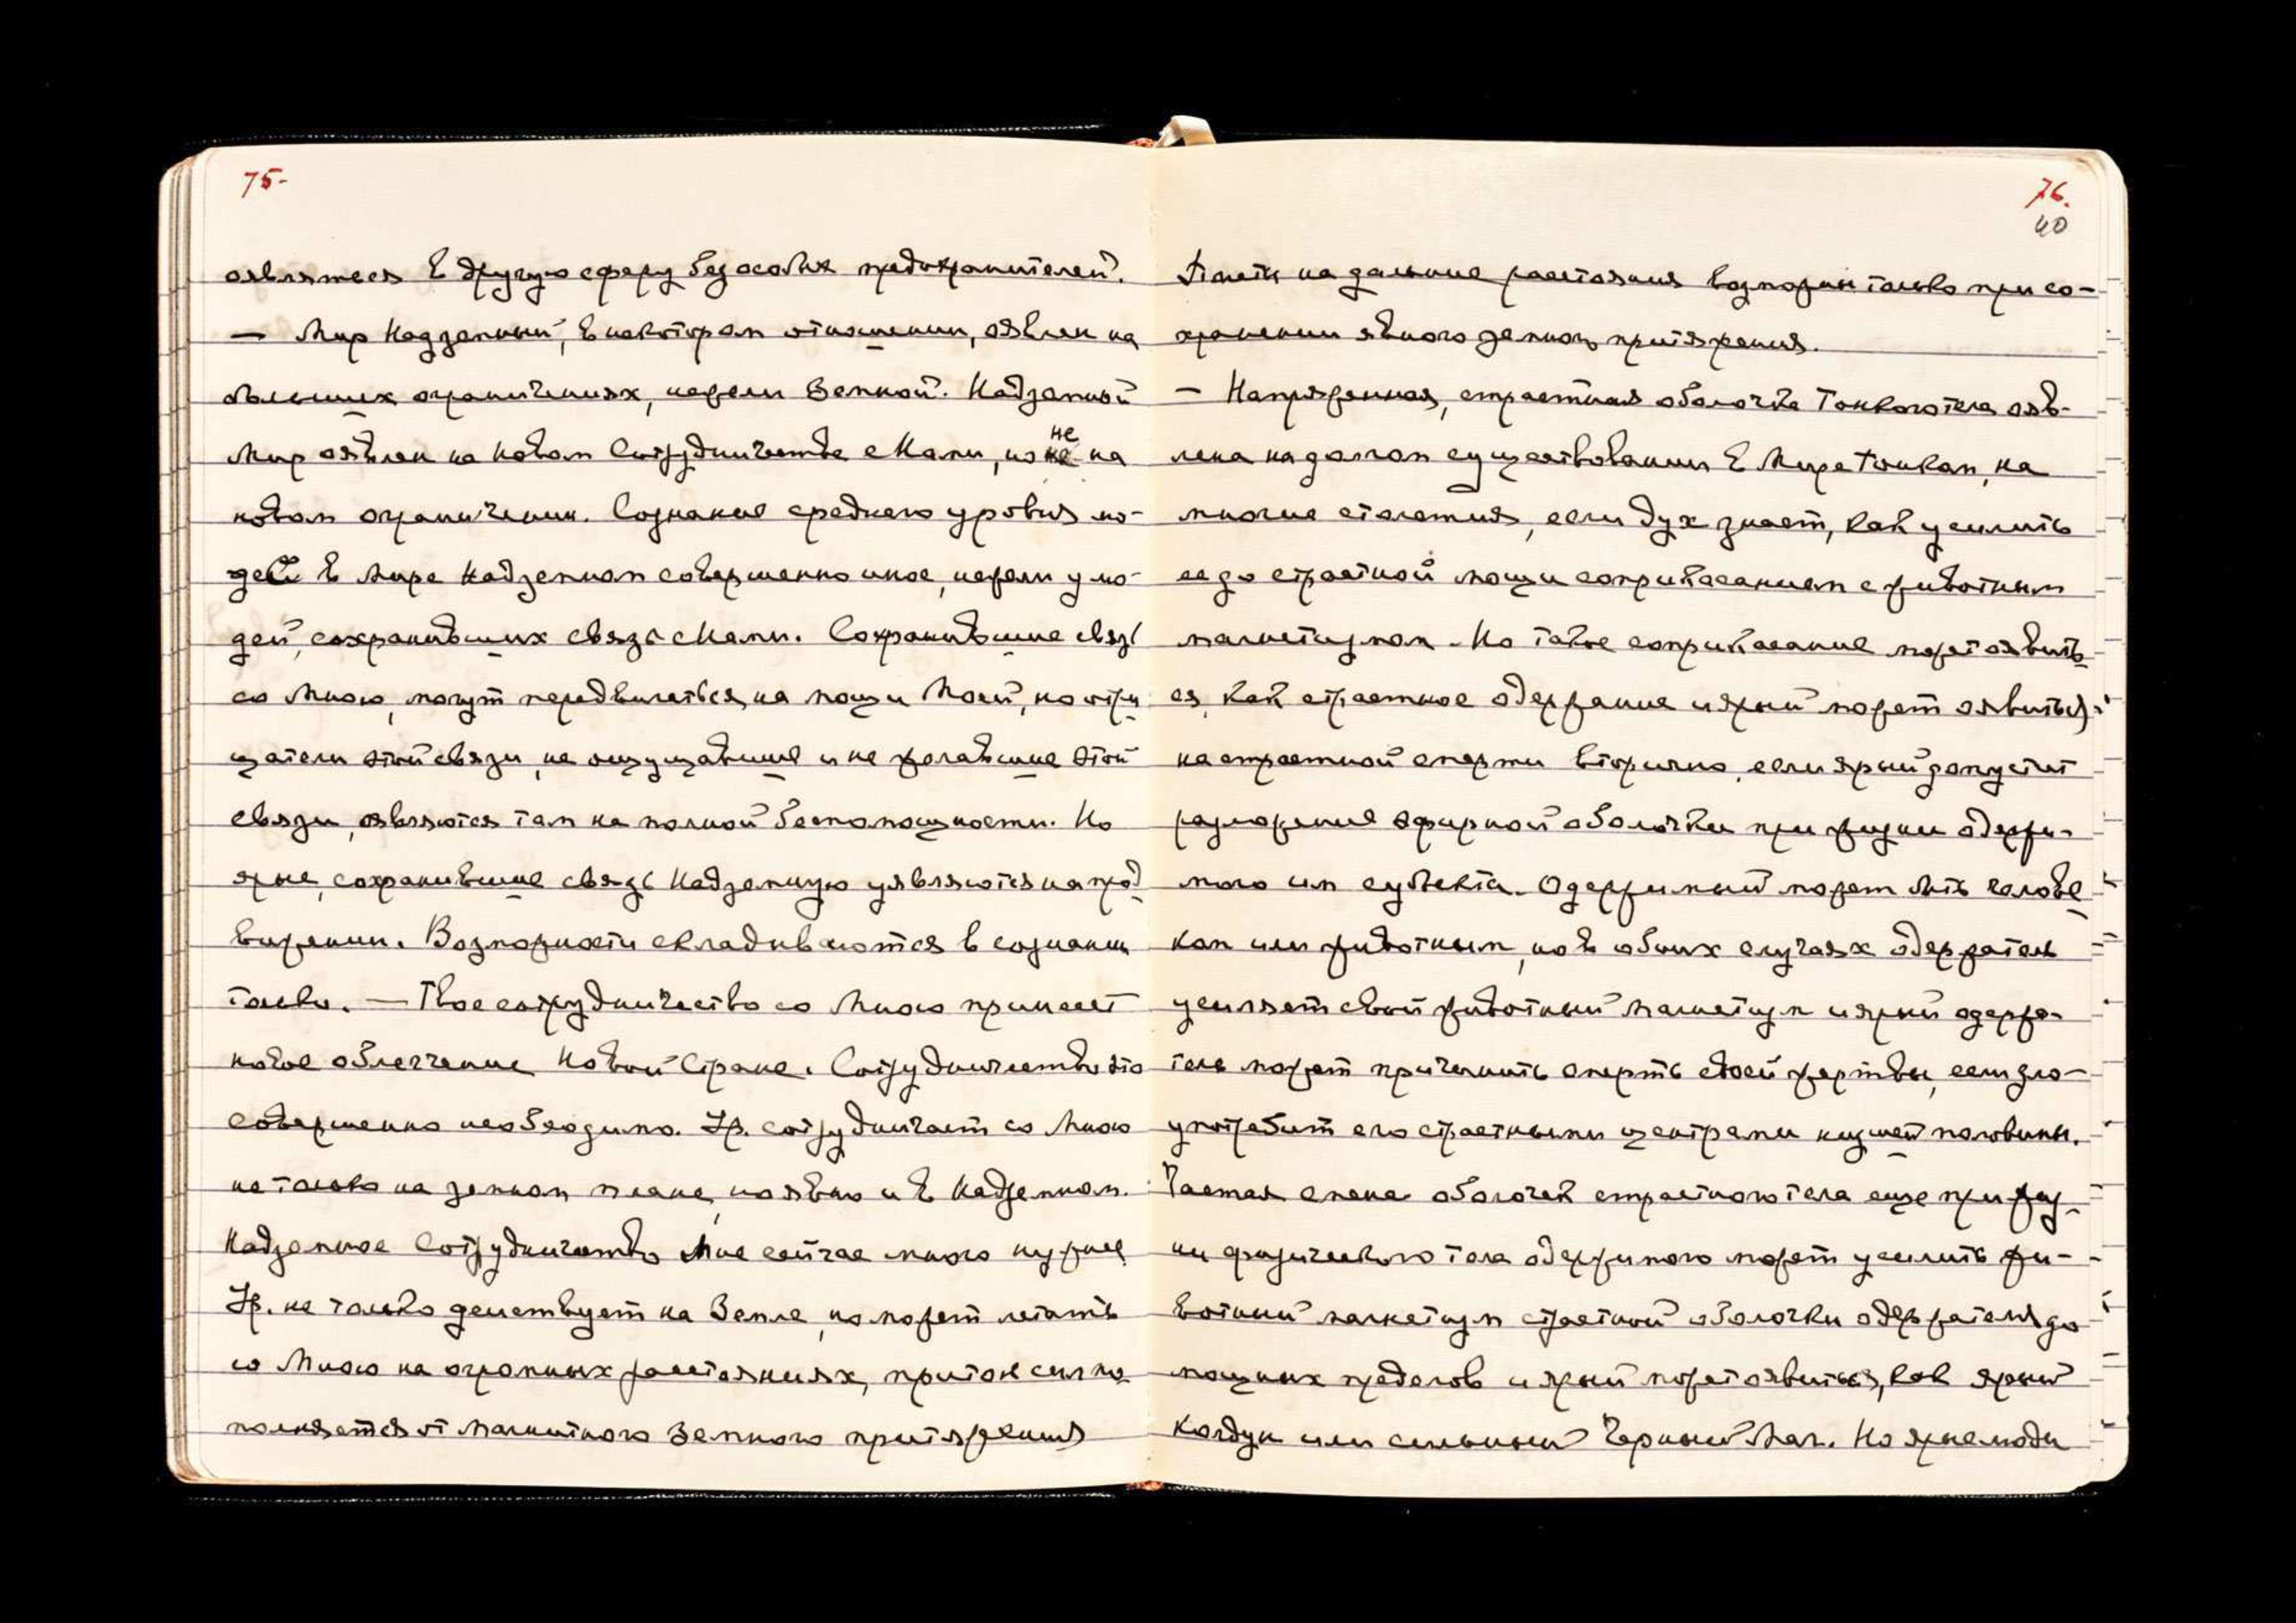 75-
оявляться в другую сферу без особых предохранителей.
— Мир Надземный, в некотором отношении, оявлен на
больших ограничениях, нежели Земной. Надземный
Мир оявлен на новом Сотрудничестве с Нами, но не на
новом ограничении. Сознание среднего уровня лю-
дей в Мире Надземном совершенно иное, нежели у лю-
дей, сохранивших связь с Нами. Сохранившие связь
со Мною, могут передвигаться на мощи Моей, но отри
цатели этой связи, не ощущавшие и не желавшие этой
связи, оявляются там на полной беспомощности. Но
ярые, сохранившие связь Надземную уявляются на прод
вижении. Возможности складываются в сознании
только. — Твое сотрудничество со Мною принесет
новое облегчение Новой Стране. Сотрудничество это
совершенно необходимо. Ур. сотрудничает со Мною
не только на земном плане, но явно и в Надземном.
Надземное Сотрудничество Мне сейчас много нужнее
Ур. не только действует на Земле, но может летать
со Мною на огромных расстояниях, приток сил по
полняется от магнитного Земного притяжения
76.
40
Полеты на дальние расстояния возможны только при со-
хранении явного земного притяжения.
— Напряженная, страстная оболочка Тонкого телаояв-
лена на долгом существовании в Мире Тонком, на
многие столетия, если дух знает, как усилить
ее до страстной мощи соприкасанием с животным
магнетизмом. Но такое соприкасание может оявить
ся, как страстное одержание и ярый может оявиться
на страстной смерти вторично, если ярый допустит
разложение эфирной оболочки при жизни одержи-
мого им субъекта. Одержимый может быть челове
ком или животным, но в обоих случаях одержатель
усиляет свой животный магнетизм и ярый одержа-
тель может причинить смерть своей жертвы, если зло-
употребит его страстными центрами низшей половины.
Частая смена оболочек страстного тела еще при жиз
ни физического тела одержимого может усилить жи-
вотный магнетизм страстной оболочки одержателя до
мощных пределов и ярый может оявиться, как ярый
Колдун или сильный Черный Маг. Но ярые люди